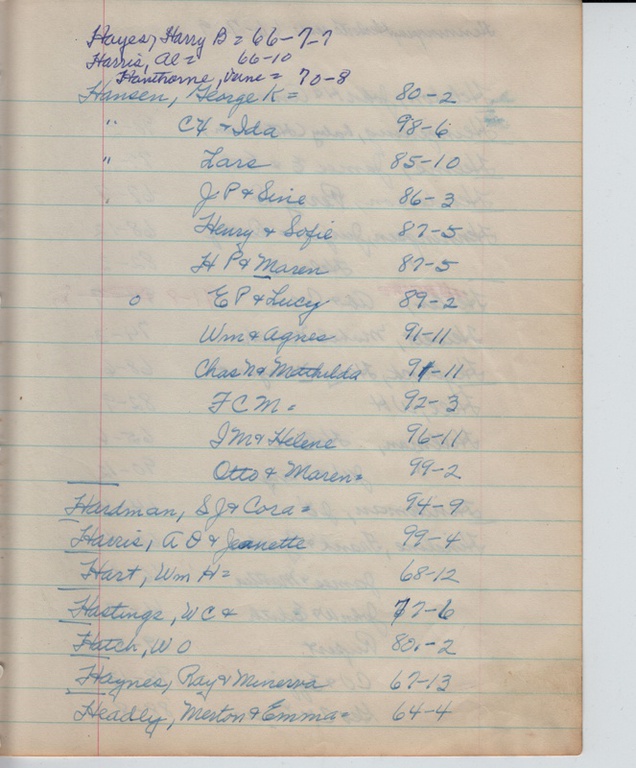 Hayes, Harry B = 66-7-7
Harris, Al = 66-10
Hawthorne, June = 70-8
Hansen, George K = 80-2
" CH & Ida 98-6
" Lars 85-10
" J P & Sine 86-3
Henry & Sofie 87-5
H P & Maren 87-5
o E P & Lucy 89-2
Wm & Agnes 91-11
Chas N & Mathilda 91-11
F C M = 92-3
I M & Helene 96-11
Otto & Maren = 99-2
Hardman, S J & Cora = 94-9
Harris, A O & Jeanette 99-4
Hart, Wm H = 68-12
Hastings, W C & 77-6
Hatch, W O 80-2
Haynes, Ray & Minerva 67-13
Headly, Merton & Emma = 64-4